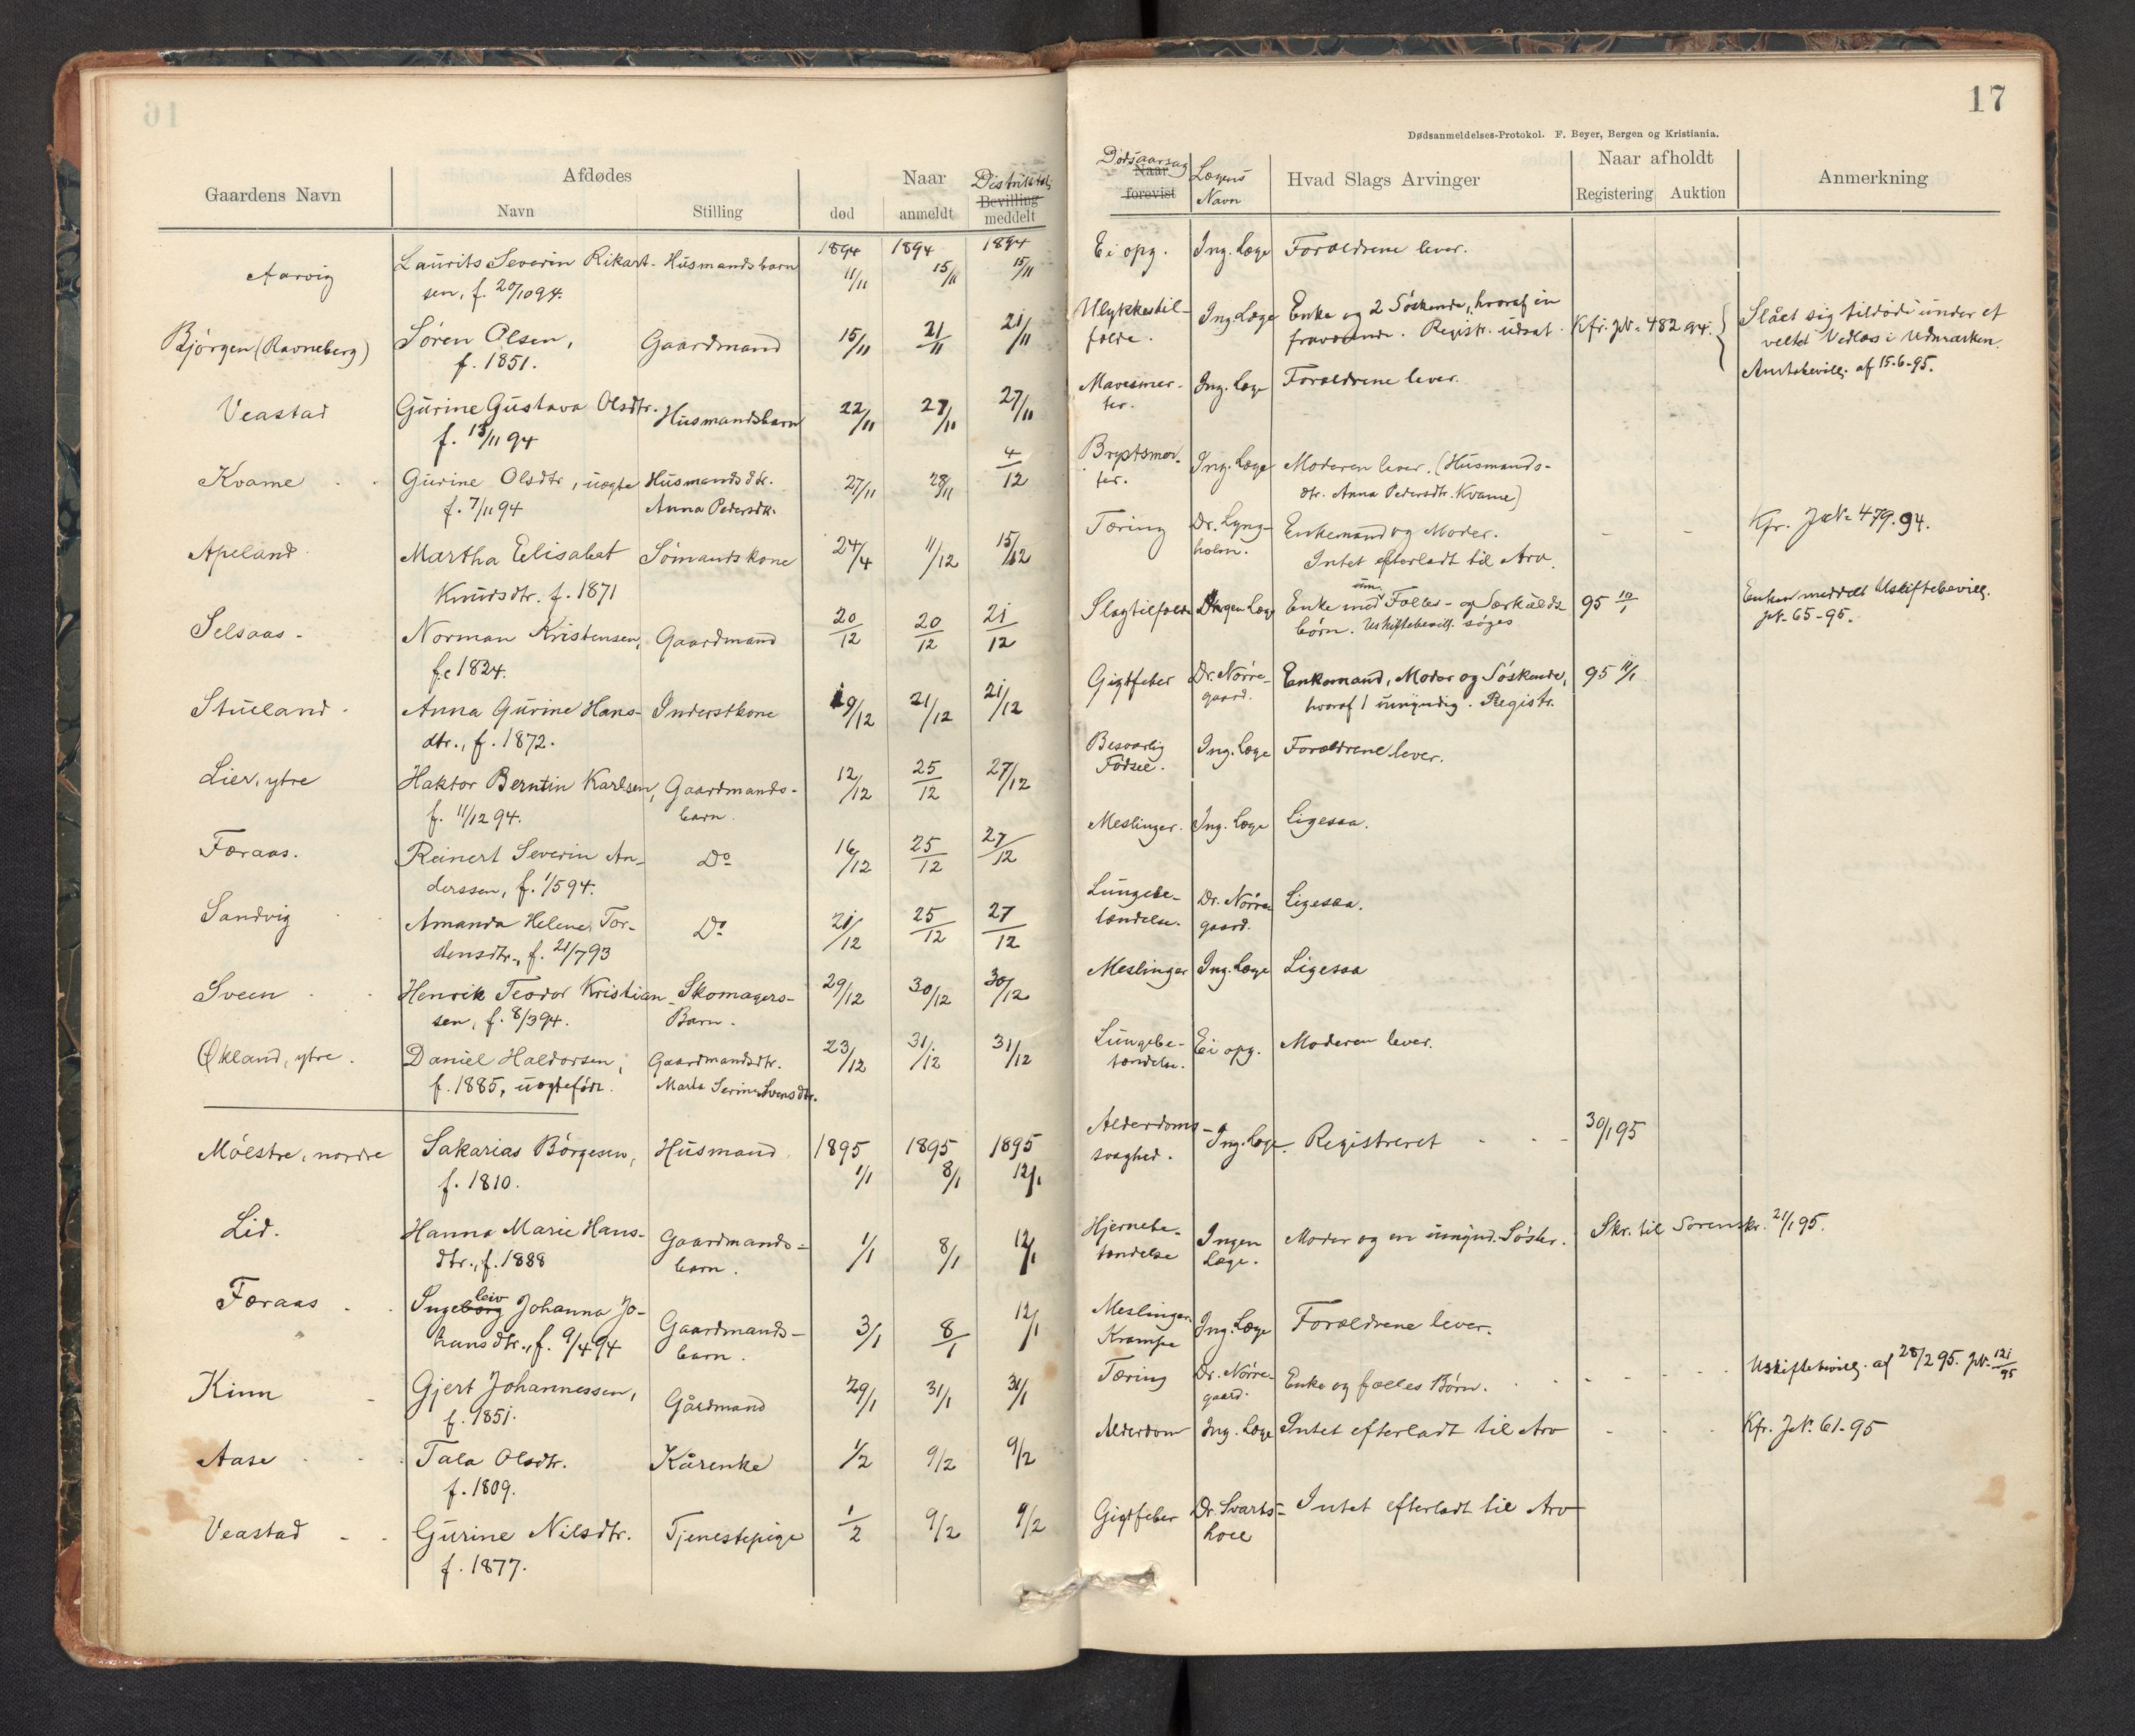 17
Dødsanmeldelses-Protokol. F. Beyer, Bergen og Kristiania.
Gaardens Navn
Afdødes
Navn
Stilling
Naar
død
anmeldt
Distriktstdlg
Bevilling
meddelt
Aarvig
Laurits Severin Rikart-
sen, f. 20/10 94.
Husmandsbarn
1894
11/11
1894
15/11
1894
15/11
Bjørgen (Ravneberg)
Søren Olsen,
f. 1851.
Gaardmand
15/11
21/11
21/11
Veastad
Gurine Gustava Olsdtr.
f. 15/11 94
Husmandsbarn
22/11
27/11
27/11
Kvame
Gurine Olsdtr, uægte
f. 7/11 94
Husmandsdtr.
Anna Pedersdtr.
27/11
28/11
4/12
Apeland
Martha Elisabet
Knudsdtr. f. 1871
Sømandskone
24/4
11/12
15/12
Selsaas
Norman Kristensen,
f. 1824.
Gaardmand
20/12
20/12
21/12
Stueland
Anna Gurine Hans-
dtr., f. 1872.
Inderstkone
19/12
21/12
21/12
Lier, ytre
Haktor Berntin Karlsen,
f. 11/12 94.
Gaardmands-
barn.
12/12
25/12
27/12
Færaas.
Reinert Severin An-
derssen, f. 1/5 94.
Do
16/12
25/12
27/12
Sandvig
Amanda Helene Tor-
stensdtr., f. 21/7 93
Do
21/12
25/12
27/12
Sveen
Henrik Teodor Kristian-
sen, f. 8/3 94.
Skomagers-
Barn.
29/12
30/12
30/12
Økland, ytre.
Daniel Haldorsen,
f. 1885, uægtefødt.
Gaardmandsdtr.
Marta Serine Svensdtr.
23/12
31/12
31/12
Møestre, nordre
Sakarias Børgesen,
f. 1810.
Husmand
1895
1/1
1895
8/1
1895
12/1
Lid.
Hanna Marie Hans-
dtr., f. 1888
Gaardmands-
barn.
1/1
8/1
12/1
Færaas
leiv
Ingeborg Johanna Jo-
hansdtr., f. 9/4 94
Gaardmands-
barn.
3/1
8/1
12/1
Kinn
Gjert Johannessen,
f. 1851.
Gårdmand
29/1
31/1
31/1
Aase
Tala Olsdtr.
f. 1809.
Kårenke
1/2
9/2
9/2
Veastad
Gurine Nilsdtr.
f. 1877.
Tjenestepige
1/2
9/2
9/2
Dødsaarsag
Naar
forevist
Lægens
Navn
Hvad Slags Arvinger
Naar afholdt
Registering
Auktion
Anmerkning
Ei opg.
Ing. Læge
Forældrene lever.
Ulykkestil-
fælde.
Ing. Læge
Enke og 2 Søskende, hvoraf en
fraværende. Registr. udsat.
Kfr. JN. 482 94.
Slået sig tildøde under et
veltet Vedlæs i Udmarken.
Amtsbevillg. af 15-6-95.
Mavesmer-
ter.
Ing. Læge
Forældrene lever.
Brystsmer-
ter.
Ing. Læge
Moderen lever. (Husmands-
dtr. Anna Pedersdtr. Kvame)
Tæring
Dr. Lyng-
holm.
Enkemand og Moder.
Intet efterladt til Arv.
Kfr. JN. 479. 94.
Slagtilfælde
Ingen Læge
um.
Enke med Fælles- og Særkulds
børn. Uskiftebevill. søges
95 10/1
Enken meddelt Uskiftebevillg.
JN. 65-95.
Gigtfeber
Dr. Nørre-
gaard.
Enkemand, Moder og Søskende,
hvoraf 1 umyndig. Registr.
95 11/1
Besværlig
Fødsel.
Ing. Læge
Forældrene lever.
Meslinger.
Ing. Læge
Ligesaa.
Lungebe-
tændelse.
Dr. Nørre-
gaard.
Ligesaa.
Meslinger
Ing. Læge
Ligesaa
Lungebe-
tændelse.
Ei opg.
Moderen lever.
Alderdoms-
svaghed.
Ing. Læge.
Registreret
30/1 95
Hjernebe-
tændelse
Ingen
Læge.
Moder og en umynd. Søster.
Skr. til Sorenskr. 21/1 95.
Meslinger.
Krampe
Ing. Læge
Forældrene lever.
Tæring
Dr. Nørre-
gaard.
Enke og fælles Børn.
Uskiftebevillg. af 28/2 95. JN. 121/95
Alderdom
Ing. Læge
Intet efterladt til Arv
Kfr. JN. 61-95
Gigtfeber
Dr. Svarts-
hoel
Intet efterladt til Arv